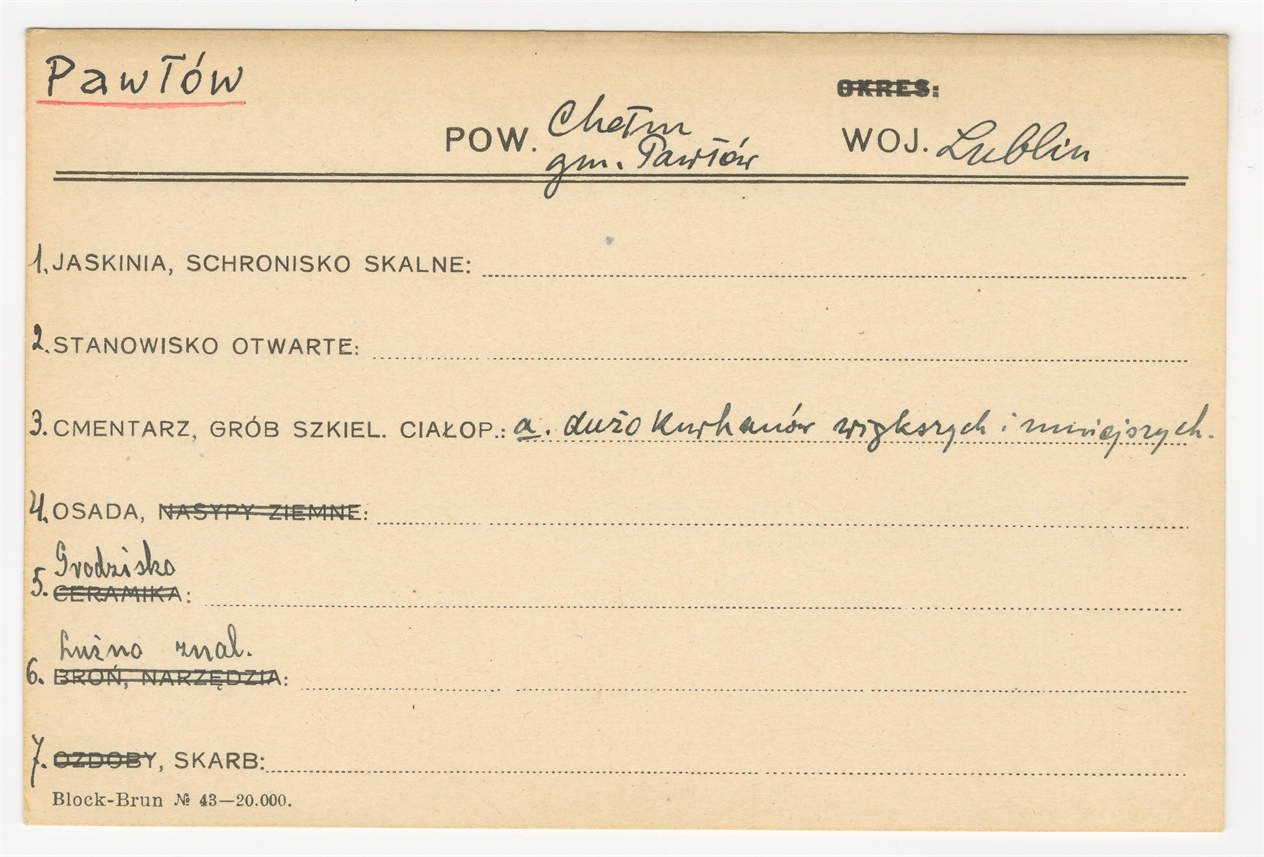 Pawłów
OKRES:
POW. Chełm WOJ. Lublin
gm. Pawłów
1. JASKINIA, SCHRONISKO SKALNE:
2. STANOWISKO OTWARTE:
3. CMENTARZ, GRÓB SZKIEL. CIAŁOP.: a. dużo kurhanów większych i mniejszych.
4. OSADA, NASYPY ZIEMNE:
Grodzisko
5. CERAMIKA:
Luźno znal.
6. BROŃ, NARZĘDZIA:
7. OZDOBY, SKARB:
Block-Brun № 43—20.000.